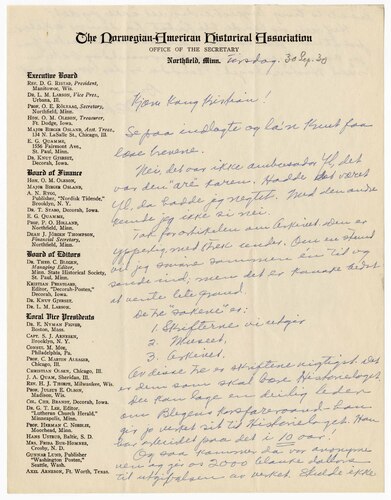 The Norwegian-American Historical Association
OFFICE OF THE SECRETARY
Northfield, Minn. Torsdag 30 Sep. 30
Executive Board
REV. D. G. RISTAD, President,
Manitowoc, Wis.
DR. L. M. LARSON, Vice Pres.,
Urbana, Ill.
PROF. O. E. RÖLVAAG, Secretary,
Northfield, Minn.
HON. O. M. OLESON, Treasurer,
Ft. Dodge, Iowa.
MAJOR BIRGER OSLAND, Asst. Treas.
134 N. LaSalle St., Chicago.
E. G. QUAMME,
1556 Fairmount Ave.,
St. Paul, Minn.
DR. KNUT GJERSET,
Decorah, Iowa.
Board of Finance
HON. O. M. OLESON,
MAJOR BIRGER OSLAND,
A. N. RYGG,
Publisher, "Nordisk Tidende,"
Brooklyn, N. Y.
DR. T. STABO, Decorah, Iowa.
E. G. QUAMME,
St. Paul, Minn.
PROF. P. O. HOLLAND,
Northfield, Minn.
DEAN J. JÖRGEN THOMPSON,
Financial Secretary,
Northfield, Minn.
Board of Editors
DR. THEO. C. BLEGEN,
Managing Editor,
Minn. State Historical Society,
St. Paul, Minn.
KRISTIAN PRESTGARD,
Editor, "Decorah-Posten,"
Decorah, Iowa.
DR. KNUT GJERSET,
DR. L. M. LARSON.
Local Vice Presidents
DR. E. NYMAN FIGVED,
Boston, Mass.
CAPT. S. J. ARNESEN,
Brooklyn, N. Y.
CONSUL M. MOE,
Philadelphia, Pa.
PROF. C. MARTIN ALSAGER,
Chicago, Ill.
CHRISTIAN OLSEN, Chicago, Ill.
J. A. QUAM, Sheridan, Ill.
REV. H. J. THORPE, Milwaukee, Wis.
PROF. JULIUS E. OLSON,
Madison, Wis.
COL. CHR. BRANDT, Decorah, Iowa.
DR. G. T. LEE, Editor
"Lutheran Church Herald,"
Minneapolis, Minn.
PROF. HERMAN C. NORDLIE,
Moorhead, Minn.
HANS USTRUD, Baltic, S. D.
MRS. FRIDA BUE-HOMNES,
Crosby, N. D.
GUNNAR LUND, Publisher
"Washington Posten,"
Seattle, Wash.
AXEL ARNESON, Ft. Worth, Texas.
Kjære Kong Kristian!
Se paa indlagte og la'n Knut faa
læse brevene.
Nei, det var ikke ambassadør til, det
var den 'are karen. Hadde det været
, da hadde jeg negtet. Med denne
kunde jeg ikke si nei.
Tak for omtalen om Arkivet den er
ypperlig med . Om en stund
vil jeg svare sammen en til og
sende ind; men det er kanske bedst
at vente lite grand.
De tre "sakene" er:
1. Skrifterne vi utgir
2. Museet,
3. Arkivet.
Av disse tre er skrifterne vigtigst. Det
er dem som skal bære Historielaget.
Du kan lage en deilig leder
om Blegens . Han
gir jo verket sit til Historielaget. Han
har arbeidet paa det i 10 aar.
Og saa kommer da vor anonyme
ven og gir os 2000 blanke dollars
til utgivelsen av verket. Skulde ikke